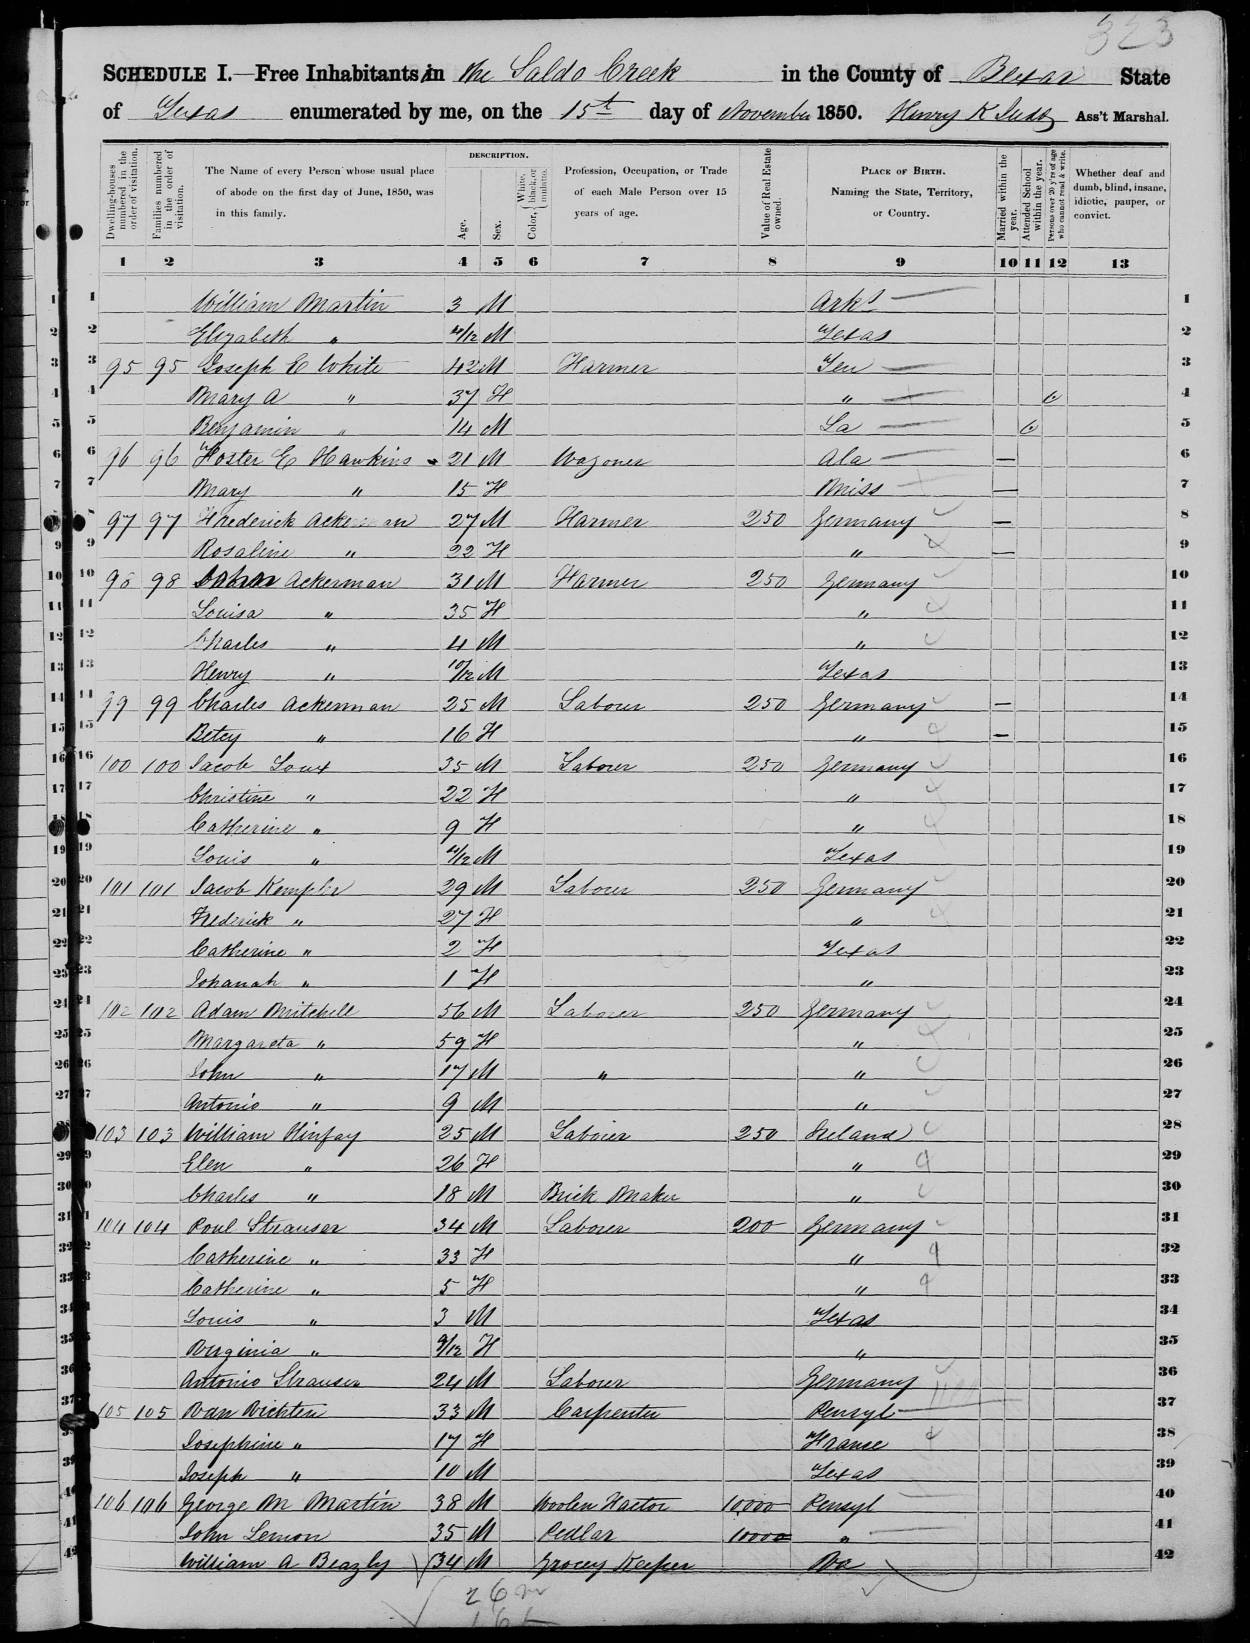 323
SCHEDULE I.—Free Inhabitants in the Saldo Creek in the County of Bexar State
of Texas enumerated by me, on the 15th day of November 1850. Henry K Judd Ass't Marshal.
Dwelling-houses numbered in the order of visitation.
Families numbered in the order of visitation.
The Name of every Person whose usual place of abode on the first day of June, 1850, was in this family.
DESCRIPTION.
Age.
Sex.
Color, White, black, or mulatto.
Profession, Occupation, or Trade of each Male Person over 15 years of age.
Value of Real Estate owned.
PLACE OF BIRTH. Naming the State, Territory, or Country.
Married within the year.
Attended School within the year.
Persons over 20 y'rs of age who cannot read & write.
Whether deaf and dumb, blind, insane, idiotic, pauper, or convict.
1 2 3 4 5 6 7 8 9 10 11 12 13
1 William Martin 3 M Arks 1
2 Elizabeth " /12 M Texas 2
3 95 95 Joseph E White 42 M Farmer Ten 3
4 Mary A " 37 F " 4
5 Benjamin " 14 M La 5
6 96 96 Foster E Hawkins 21 M Wagoner Ala — 6
7 Mary " 15 F Miss — 7
8 97 97 Frederick Ackerman 27 M Farmer 250 Germany — 8
9 Rosaline " 22 F " — 9
10 98 98 John Ackerman 31 M Farmer 250 Germany 10
11 Louisa " 35 F " 11
12 Charles " 4 M " 12
13 Henry " 10/12 M Texas 13
14 99 99 Charles Ackerman 25 M Laborer 250 Germany — 14
15 Betcy " 16 F " — 15
16 100 100 Jacob 35 M Laborer 250 Germany 16
17 Christine " 22 F " 17
18 Catherine " 9 F " 18
19 Louis " /12 M Texas 19
20 101 101 Jacob Kempler 29 M Laborer 250 Germany 20
21 Frederick " 27 F " 21
22 Catherine " 2 F Texas 22
23 Johanah " 1 F " 23
24 102 102 Adam Mritchell 56 M Laborer 250 Germany 24
25 Margareta " 59 F " 25
26 John " 17 M " " 26
27 Antonio " 9 M " 27
28 103 103 William Hinfay 25 M Laborer 250 Ireland 28
29 Elen " 26 F " 29
30 Charles " 18 M Brick Maker " 30
31 104 104 Poul Strauser 34 M Laborer 200 Germany 31
32 Catherine " 33 F " 32
33 Catherine " 5 F " 33
34 Louis " 3 M Texas 34
35 Virginia " 9/12 F " 35
36 Antonio Strauser 24 M Laborer Germany 36
37 105 105 Van Vichten 33 M Carpenter Pensyl 37
38 Josephine " 17 F France 38
39 Joseph " 10 M Texas 39
40 106 106 George M Martin 38 M Woolen Factor 10,000 Pensyl 40
41 John Lemon 35 M Pedlar 10000 " 41
42 William A Beazly 34 M Grocey Keeper Va 42
26 m
16 f